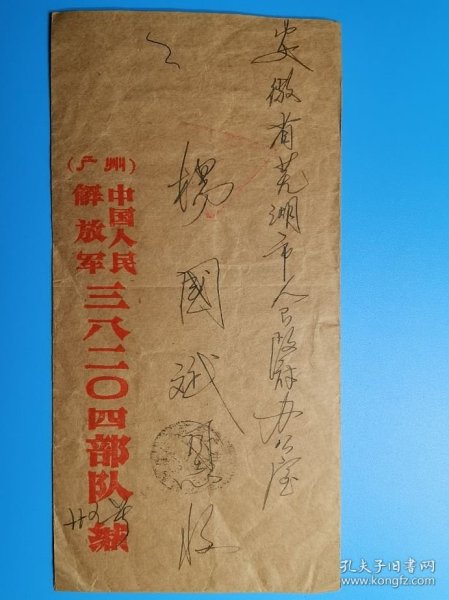 安徽省芜湖市人民政府办公室
楊國斌同志收
(广州)
中国人民
解放军
三八二〇四部队缄
孔夫子旧书网
www.kongfz.com